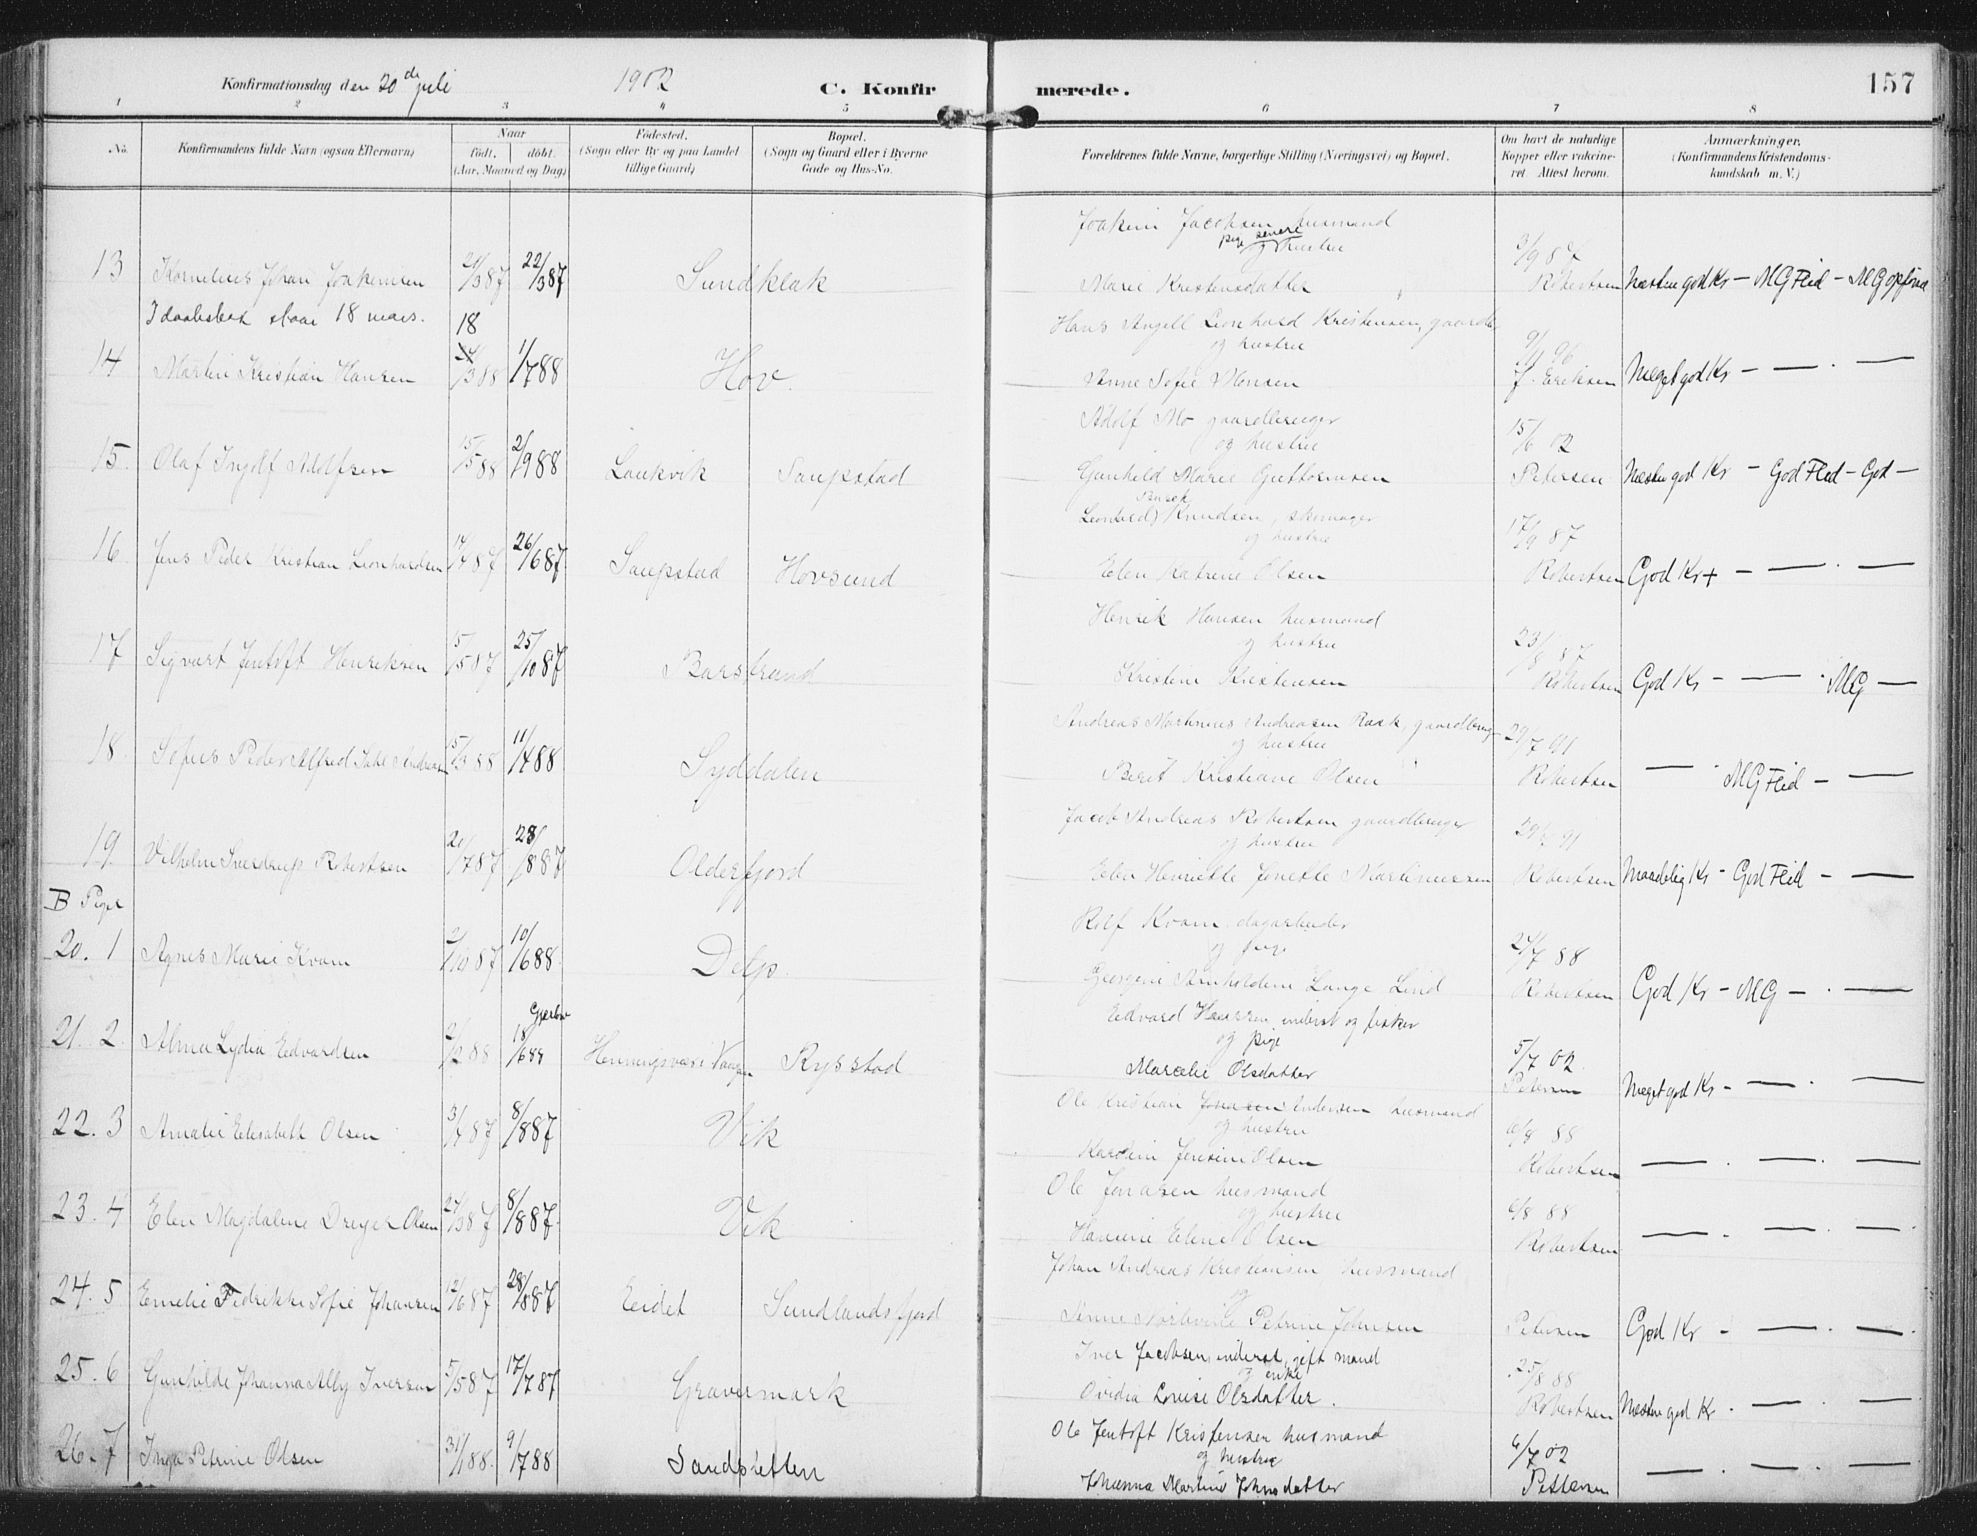 Konfirmationsdag den 20de juli 1902 C. Konfirmerede. 157
1 2 3 4 5 6 7 8
No.
Konfirmandens fulde Navn (ogsaa Efternavn)
Naar
født, døbt.
(Aar, Maaned og Dag)
Fødested.
(Sogn eller By og paa Landet
tillige Gaard)
Bopæl.
(Sogn og Gaard eller i Byerne
Gade og Hus-No.
Forældrenes fulde Navne, borgerlige Stilling (Næringsvei) og Bopæl.
Om havt de naturlige
Kopper eller vakcine-
ret. Attest herom.
Anmærkninger.
(Konfirmandens Kristendoms-
kundskab m. V.)
Joakim Jacobsen husmand
pige senere
og hustru
13 Kornelius Johan Joakimsen 21/3 87 22/3 87 Sundklak Marie Kristensdatter 3/9 87 Robertsen Næsten god Kr - MG Flid - MG opførsel
I daabsbok staar 18 mars. 18
Hans Angell Leonhard Kristensen, gaardb.
og hustru
14 Martin Kristian Hansen /3 88 1/7 88 Hov. Anne Sofie Monsen 9/11 96 J. Eriksen Meget god Kr - — . —
Adolf Mo gaardbruger
og hustru
15. Olaf Ingolf Adolfsen 15/5 88 2/9 88 Laukvik Saupstad Gunhild Marie Guttormsen 15/6 02 Petersen Næsten god Kr - God Flid - God -
Leonhard Knudsen, skomager
og hustru
16. Jens Peder Kristian Leonhardsen 14/4 87 26/6 87 Saupstad Hovsund Elen Katrine Olsen 17/9 87 Robertsen God Kr + - — . —
Henrik Hansen husmand
og hustru
17 Sigvart Jentoft Henriksen 15/5 87 25/10 87 Barstrand Kristine Kristensen 23/8 87 Robertsen God Kr - — . MG —
Andreas Martinus Andreasen Rask, gaardbruger
og hustru
18. Sofus Peder Alfred 15/3 88 11/4 88 Syddalen Berit Kristiane Olsen 29/7 91 Robertsen — . MG Flid - —
Jacob Andreas Robertsen gaardbruger
og hustru
19. Vilhelm Sverdrup Robertsen 20/7 87 28/8 87 Olderfjord Elen Henriette Jonette Martinussen 29/7 91 Robertsen Maadelig Kr - God Flid - —
B Piger
Rolf Kvam dagarbeider
og pige
20. 1 Agnes Marie Kvam 2/10 87 10/6 88 Delp. Georgine Arnholdine Lange Lind 24/7 88 Robertsen God Kr - MG - . —
Edvard Hansen inderst og fisker
og pige
21. 2. Alma Lydia Edvardsen 2/2 88 18/6 88 Henningsvær i Vaagan Rystad Marselie Olsdatter 5/7 02 Petersen Meget god Kr - — . —
Ole Kristian Jonasen Andersen husmand
og hustru
22. 3 Amalie Elisabeth Olsen 3/4 87 8/8 87 Vik Karolin Jensine Olsen 6/8 88 Robertsen — . — . —
Ole Jonasen husmand
og hustru
23. 4 Elen Magdalene Dreyer Olsen 24/3 87 8/8 87 Vik Hansine Elene Olsen 6/8 88 Robertsen — . — . —
Johan Andreas Kristiansen husmand
og
24. 5 Emelie Fredrikke Sofie Johansen 12/6 87 28/8 87 Eidet Sundlandsfjord Anne Petrine Johnsen Petersen God Kr - — . —.
Iver Jacobsen, inderst, gift mand
og enke
25. 6 Gunhilde Johanna Ally Iversen 5/5 87 17/7 87 Gravermark Ovidia Lovise Olsdatter. 25/8 88 Robertsen Næsten god Kr. — . —
Ole Jentoft Kristensen husmand
og hustru
26. 7 Inga Petrine Olsen 31/1 88. 9/7 88 Sandsletten Johanna Martine Johnsdatter 6/7 02 Petersen — . — . —